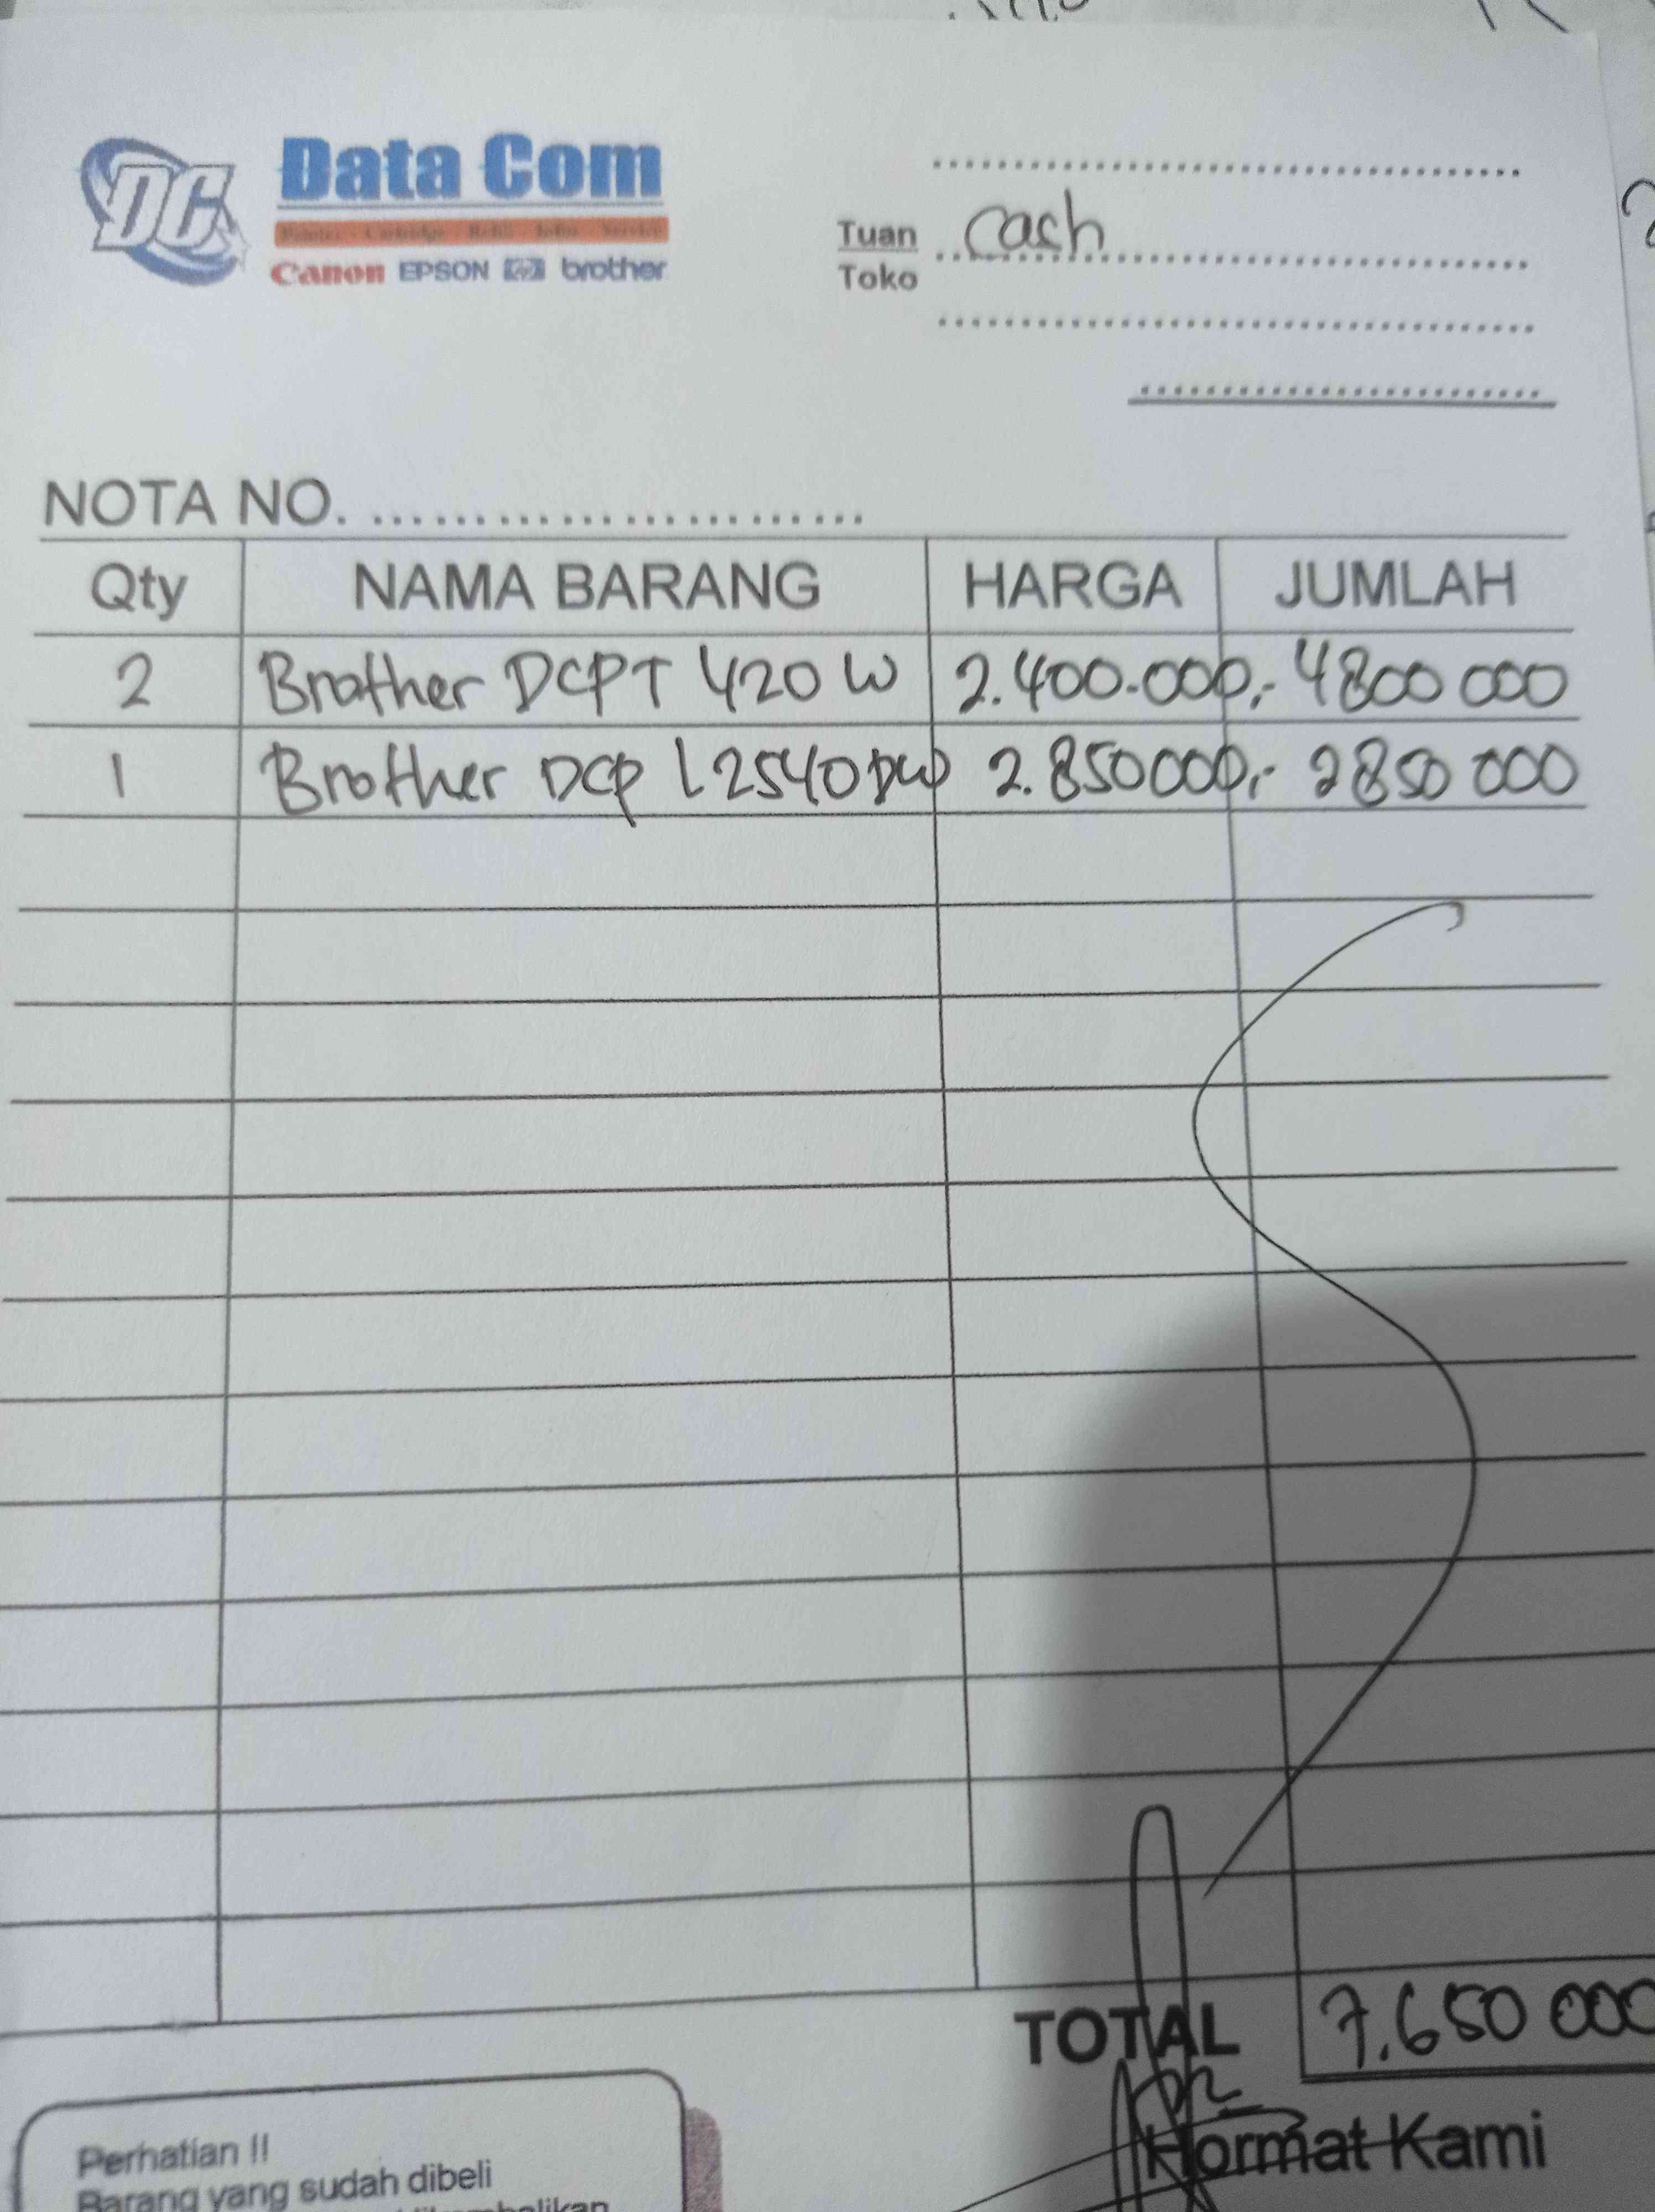 DC Data Com
Printer - Cartridge - Refill - Infus - Service
Canon EPSON hp brother
Tuan cash
Toko
NOTA NO. ..............................
Qty NAMA BARANG HARGA JUMLAH
2 Brother DCPT 420 W 2.400.000,- 4800 000
1 Brother DCP L2540DW 2.850000,- 2850 000
TOTAL 7.650 000
Hormat Kami
Perhatian !!
Barang yang sudah dibeli